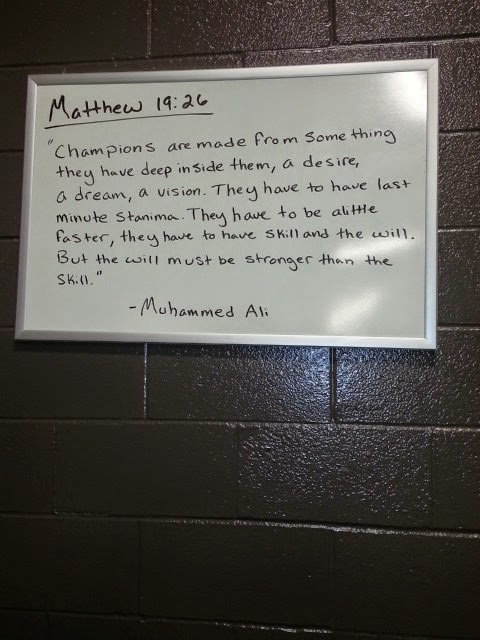 Matthew 19:26
"Champions are made from something
they have deep inside them, a desire,
a dream, a vision. They have to have last
minute stanima. They have to be alittle
faster, they have to have skill and the will.
But the will must be stronger than the
skill."
-Muhammed Ali